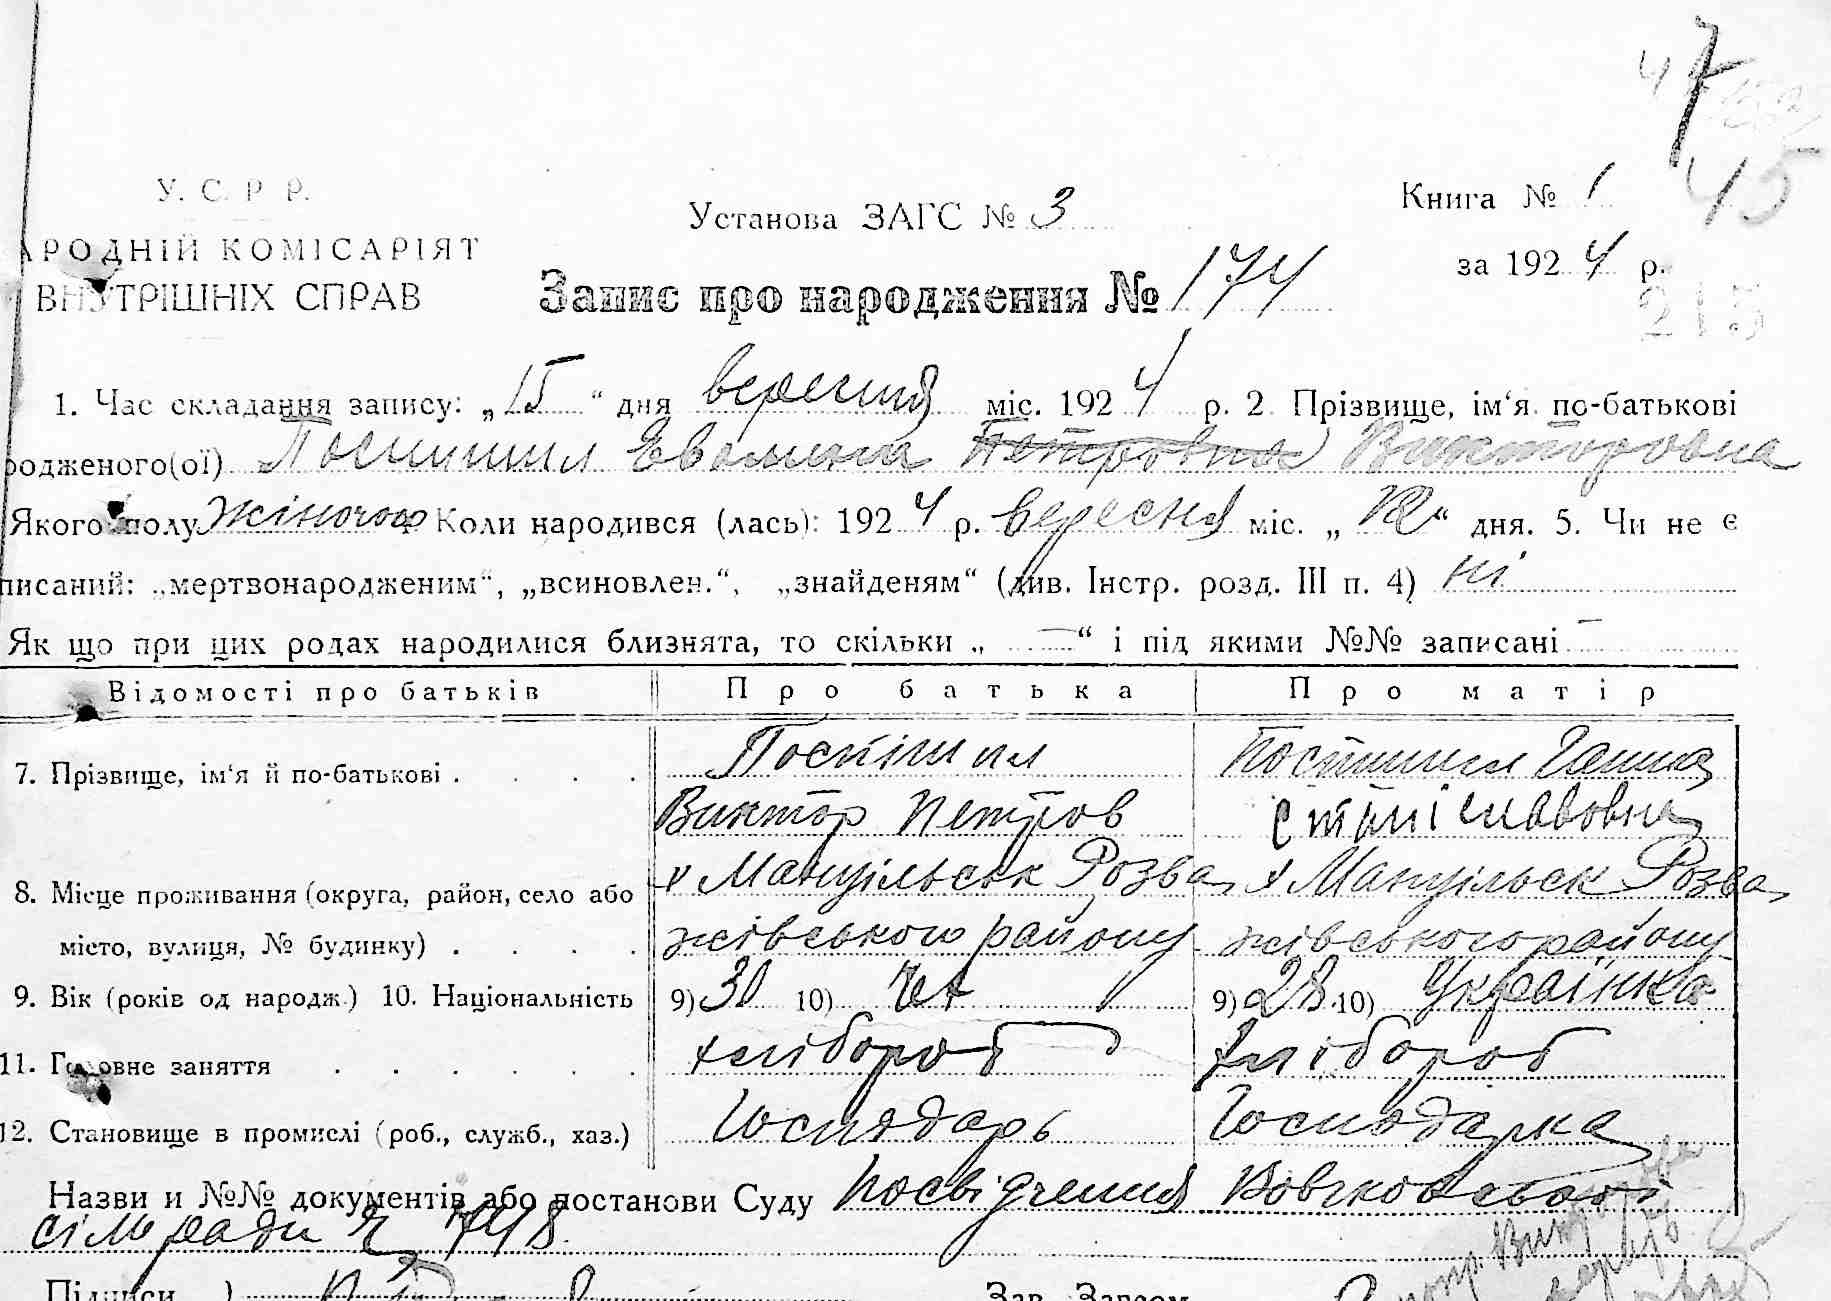 7
45
У. С. Р Р.
Установа ЗАГС № 3
Книга № 1
АРОДНІЙ КОМІСАРІЯТ
за 1924 р.
ВНУТРІШНІХ СПРАВ
Запис про народження № 174
215
1. Час складання запису: „15“ дня вересня міс. 1924 р. 2 Прізвище, ім‘я по-батькові
родженого(ої) Поспишил Евелина Петровна Викторовна
Якого полу жіночого Коли народився (лась): 1924 р. вересня міс. „12“ дня. 5. Чи не є
писаний: „мертвонародженим“, „всиновлен.“, „знайденям“ (див. Інстр. розд. III п. 4) ні
Як що при цих родах народилися близнята, то скільки „ — “ і під якими №№ записані —
Відомості про батьків Про батька Про матір
7. Прізвище, ім‘я й по-батькові . . . . Поспішил Поспишил Ганна
Виктор Петров Станіславовна
8. Місце проживання (округа, район, село або Мануільськ Розва Мануільск Розва
місто, вулиця, № будинку) . . . . жівського району жівського району
9. Вік (років од народж.) 10. Національність 9) 30 10) Чех 9) 28 10) Українка
11. Головне заняття . . . . . . хлібороб хлібороб
12. Становище в промислі (роб., служб., хаз.) Господарь Господарка
Назви и №№ документів або постанови Суду посвідчення Вовчковської
сільради 748
Підписи ) Зав. Загсом